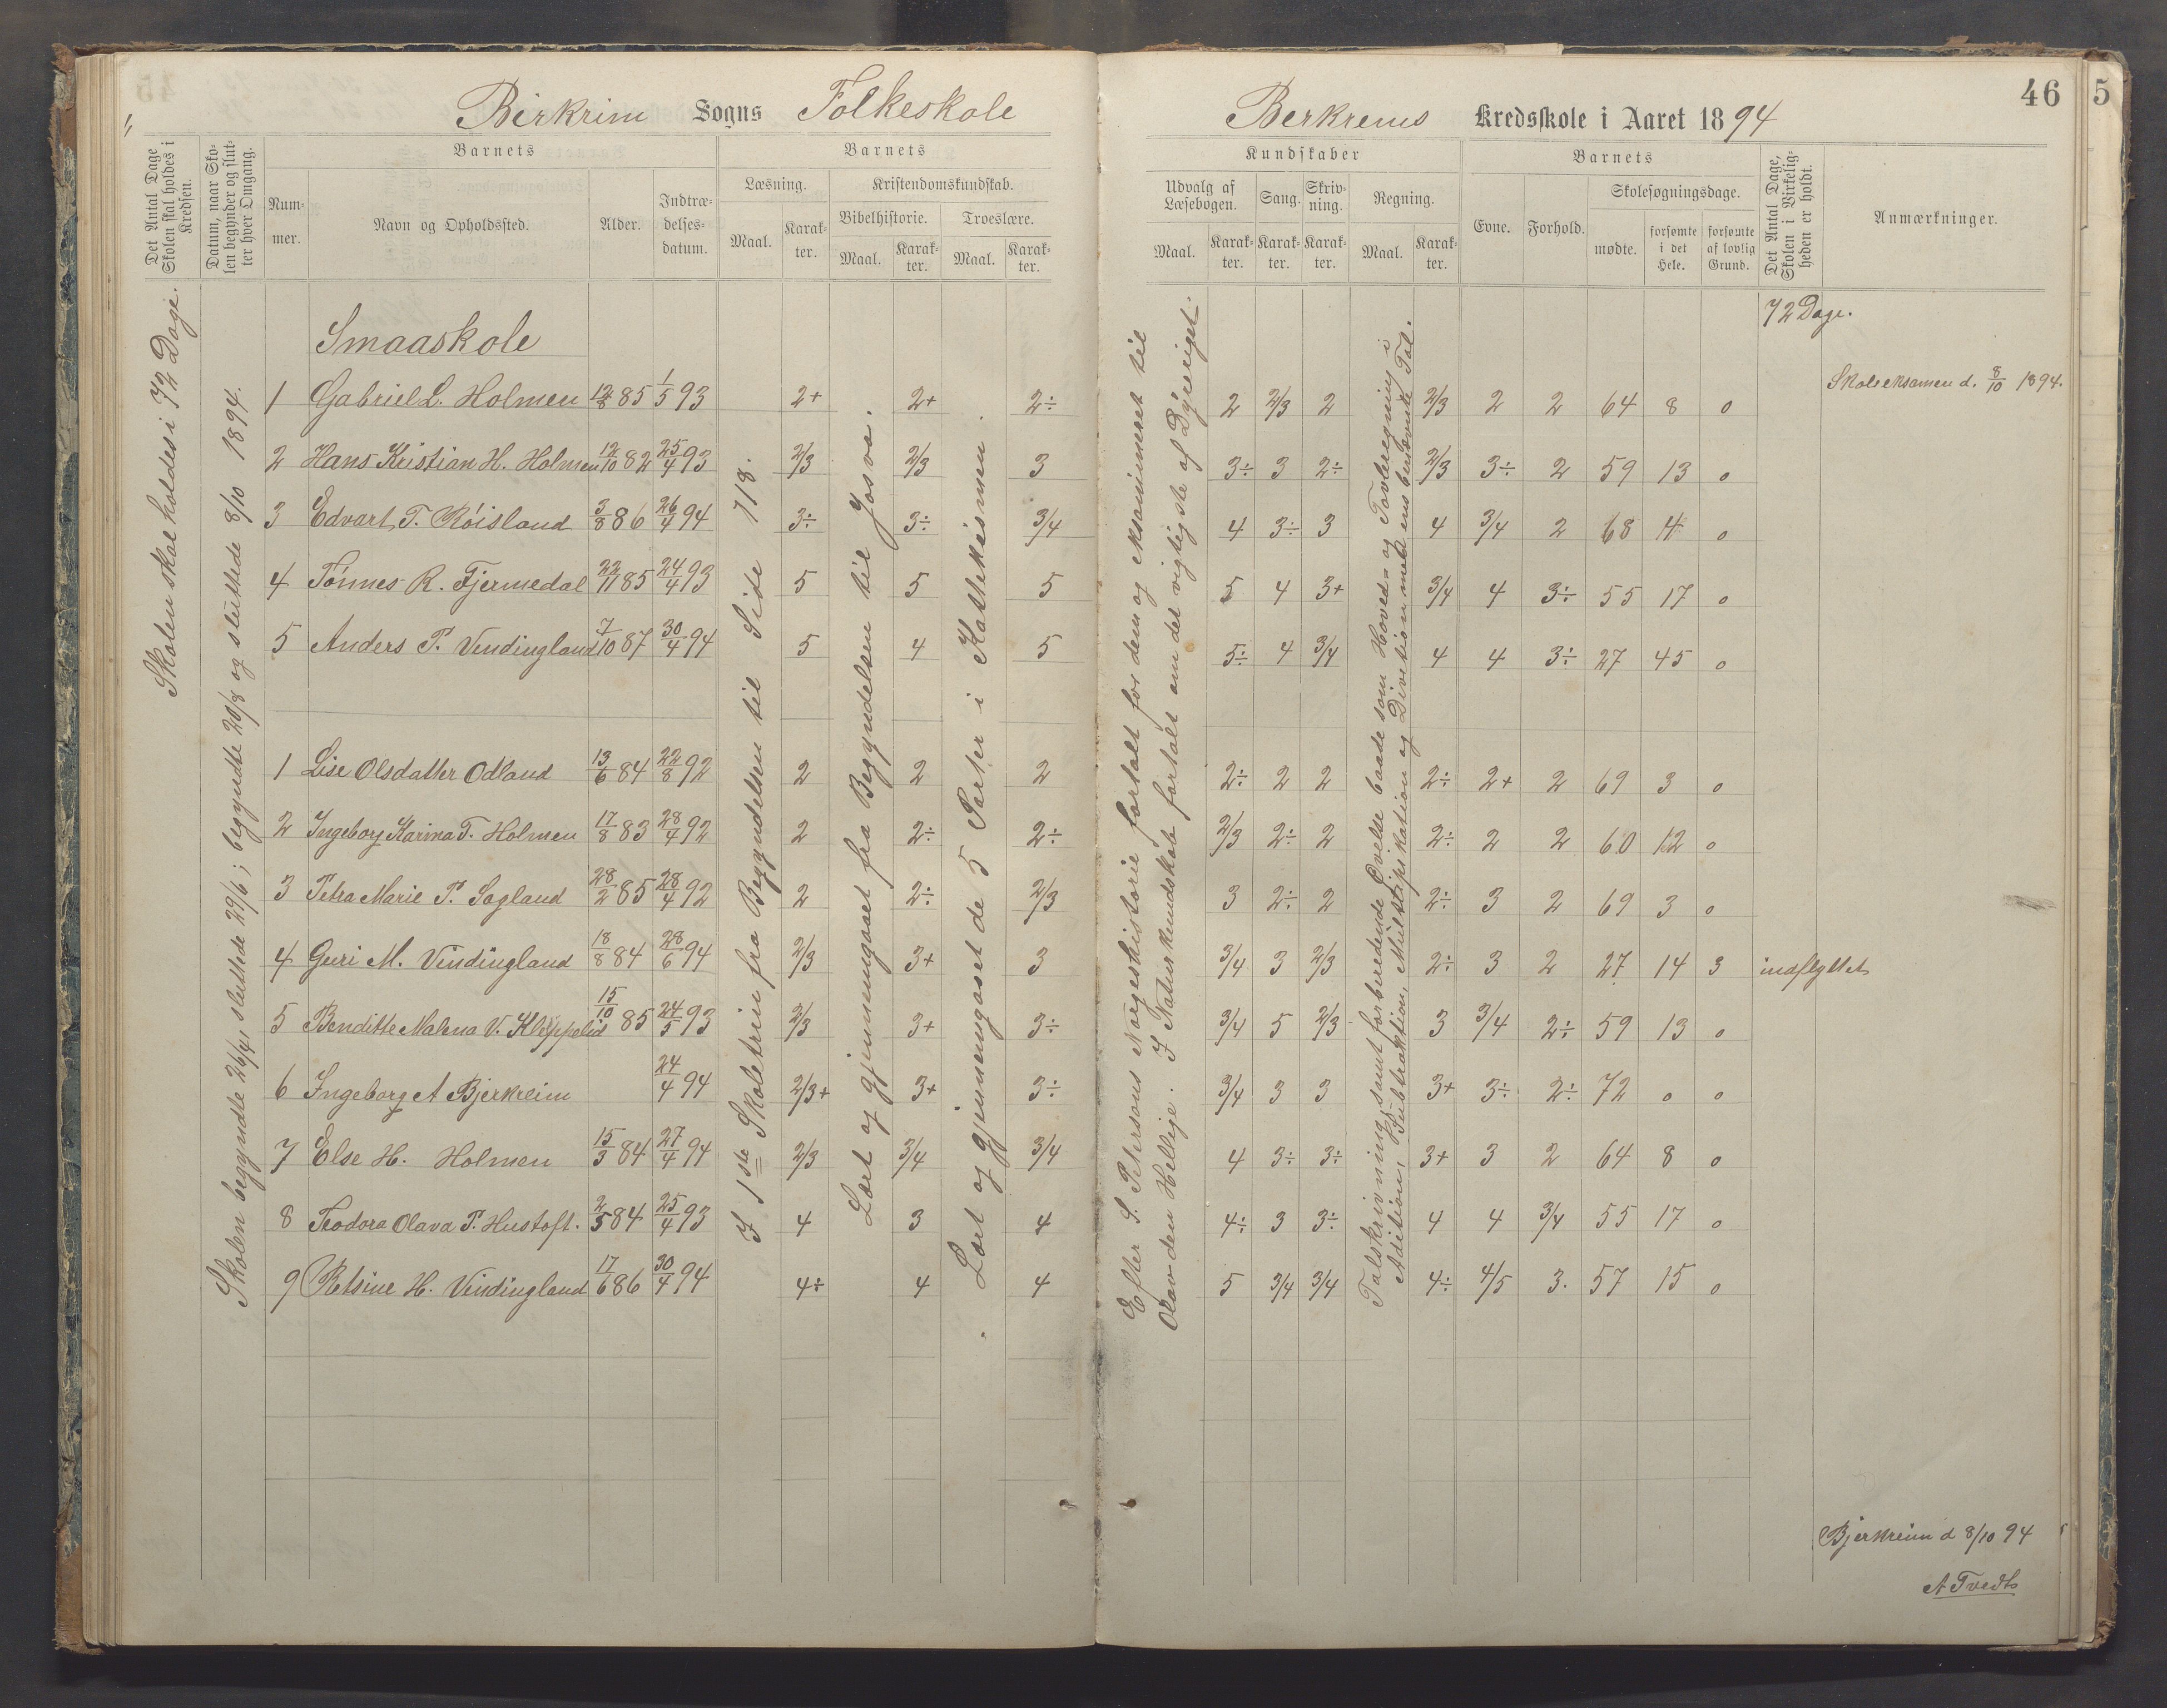 46
5
Birkrim Sogns Folkeskole
Berkrems Kredsskole i Aaret 1894
Det Antal Dage Skolen skal holdes i Kredsen.
Datum, naar Skolen begynder og slutter hver Omgang.
Barnets
Nummer.
Navn og Opholdssted.
Alder.
Indtrædelsesdatum.
Barnets
Læsning.
Maal.
Karakter.
Kristendomskundskab.
Bibelhistorie.
Maal.
Karakter.
Troeslære.
Maal.
Karakter.
Kundskaber
Udvalg af Læsebogen.
Maal.
Karakter.
Sang.
Karakter.
Skrivning.
Karakter.
Regning.
Maal.
Karakter.
Barnets
Evne.
Forhold.
Skolesøgningsdage.
mødte.
forsømte i det Hele.
forsømte af lovlig Grund.
Det Antal Dage, Skolen i Virkeligheden er holdt.
Anmærkninger.
Skolen skal holdes i 72 Dage.
Skolen begyndte 26/4, sluttede 29/6; begyndte 20/8 og sluttede 8/10 1894.
I 1ste Skoletrin fra Begyndelsen til Side 118.
Lært og gjennemgaaet fra Begyndelsen til Josva.
Lært og gjennemgaaet de 5 Parter i Katekismen.
Efter S. Petersens Norgeshistorie fortalt for dem og eksamineret til
Olav den Hellige. I Naturkundskab fortalt om det vigtigste af Dyreriget.
Talskrivning, samt forberedende Øvelse baade som Hoved- og Tavleregning i
Adition, Subtraktion, Multiplikation og Division med ensbenævnte Tal.
72 Dage.
Smaaskole
Skoleeksamen d. 8/10 1894.
1 Gabriel L. Holmen 12/8 85 1/5 93 2+ 2+ 2÷ 2 2/3 2 2/3 2 2 64 8 0
2 Hans Kristian H. Holmen 12/10 82 25/4 93 2/3 2/3 3 3÷ 3 2÷ 2/3 3÷ 2 59 13 0
3 Edvart T. Røisland 3/8 86 26/4 94 3÷ 3÷ 3/4 4 3÷ 3 4 3/4 2 68 4 0
4 Tønnes R. Fjermedal 22/11 85 24/4 93 5 5 5 5 4 3+ 3/4 4 3÷ 55 17 0
5 Anders P. Vindingland 7/10 87 30/4 94 5 4 5 5÷ 4 3/4 4 4 3÷ 27 45 0
1 Lise Olsdatter Odland 13/6 84 22/8 92 2 2 2 2÷ 2 2 2÷ 2+ 2 69 3 0
2 Ingeborg Karina T. Holmen 17/8 83 28/4 92 2 2÷ 2÷ 2/3 2÷ 2 2÷ 2 2 60 12 0
3 Petra Marie P. Sagland 28/2 85 28/4 92 2 2÷ 2/3 3 2÷ 2 2÷ 3 2 69 3 0
4 Guri M. Vindingland 18/8 84 28/6 94 2/3 3+ 3 3/4 3 2/3 2÷ 3 2 27 14 3 indflyttet
5 Benditte Malena V. Kløppelid 15/10 85 24/5 93 2/3 3+ 3÷ 3/4 5 2/3 3 3/4 2÷ 59 13 0
6 Ingeborg A Bjerkreim 24/4 94 2/3+ 3+ 3÷ 3/4 3 3 3+ 3÷ 2÷ 72 0 0
7 Else H. Holmen 15/3 84 27/4 94 2/3 3/4 3/4 4 3÷ 3÷ 3+ 3 2 64 8 0
8 Teodora Olava P. Hustoft. 2/5 84 25/4 93 4 3 4 4÷ 3 3÷ 4 4 3/4 55 17 0
9 Retsine H. Vindingland 17/6 86 30/4 94 4÷ 4 4 5 3/4 3/4 4÷ 4/5 3. 57 15 0
Bjerkreim d 8/10 94
A Tvedt